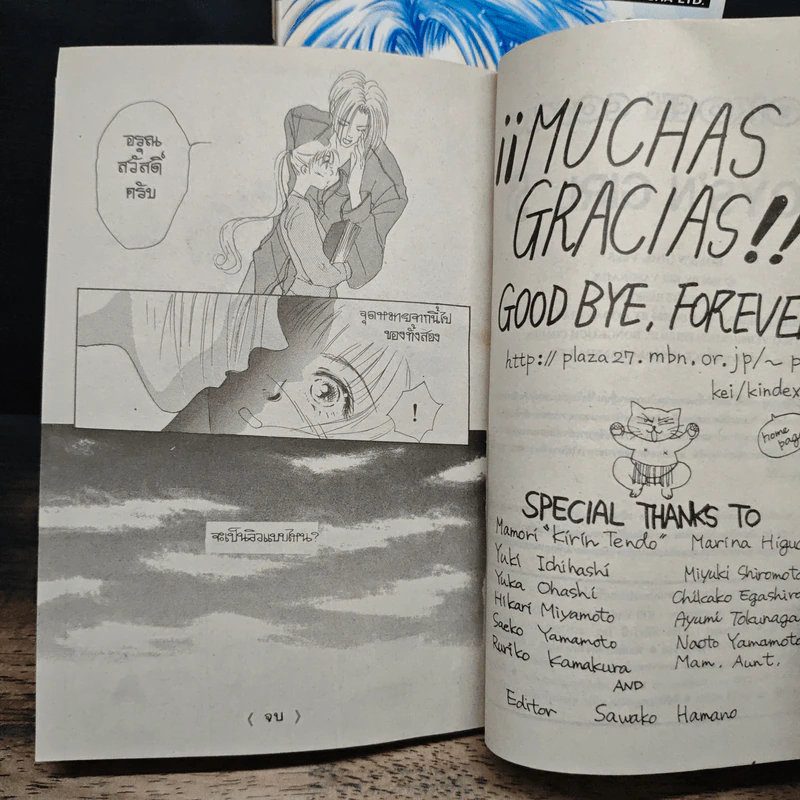 LTD.
อรุณ
สวัสดิ์
ครับ
จุดหมายจากนี้ไป
ของทั้งสอง
!
จะเป็นวิวแบบไหน?
< จบ >
¡¡MUCHAS
GRACIAS!!
GOOD BYE, FOREVE
http://plaza27.mbn.or.jp/~p
kei/kindex
home
page
SPECIAL THANKS TO
Mamori "Kirin Tendo" Marina Higu
Yuki Ichihashi Miyuki Shiromot
Yuka Ohashi Chikako Egashira
Hikari Miyamoto Ayumi Tokunaga
Saeko Yamamoto Naoto Yamamoto
Ruriko Kamakura Mam, Aunt,
AND
Editor Sawako Hamano